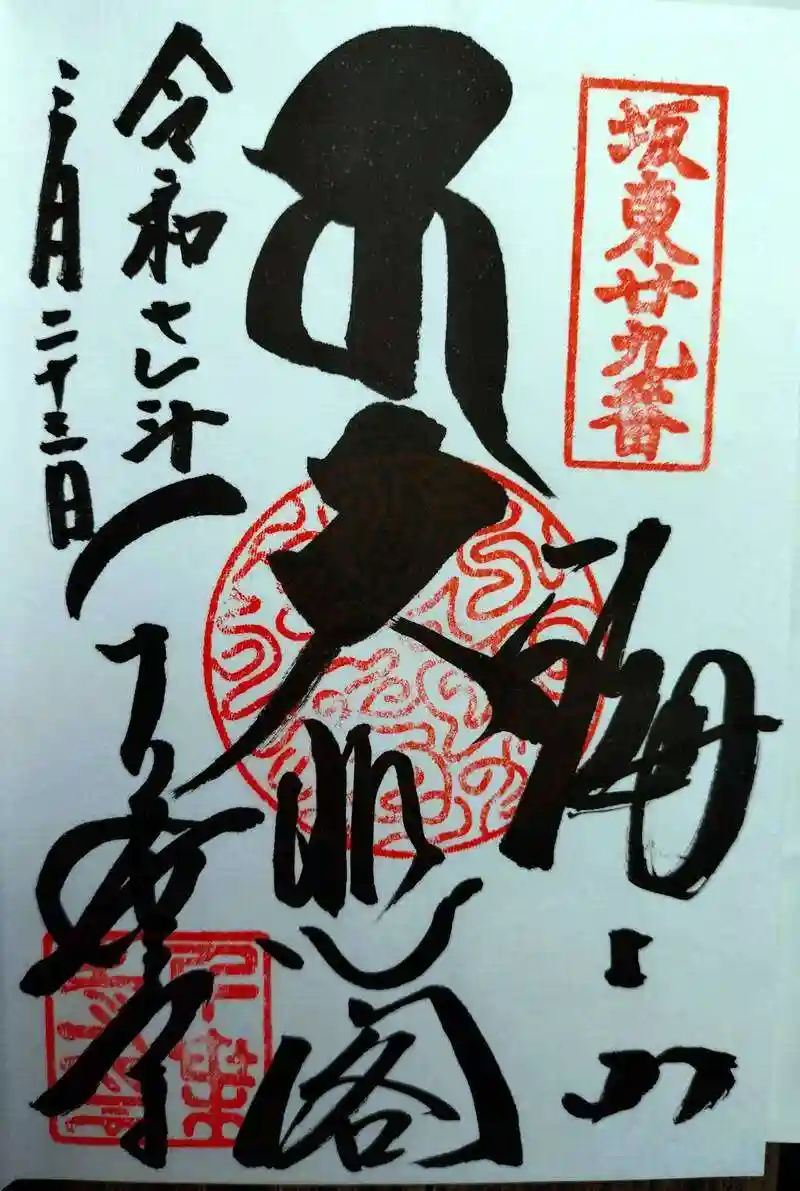 坂東廿九番
海上山
大悲閣
令和七年
三月二十三日
千葉寺